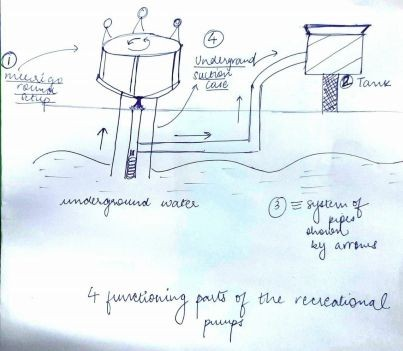 ①
merri go
round
setup
④
Underground
suction
case
② Tank
underground water
③ = system of
pipes
shown
by arrows
4 functioning parts of the recreational
pumps